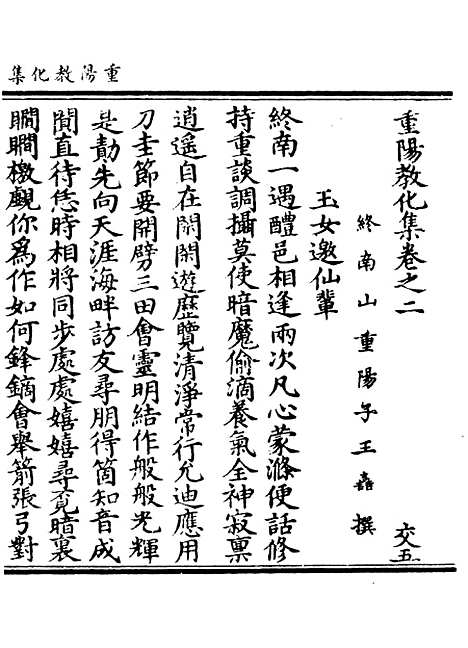 重陽教化集
重陽教化集卷之二 交五
終南山重陽子王嚞撰
玉女邀仙輩
終南一遇醴邑相逢兩次凡心蒙滌便話修
持重談調攝莫使暗魔偷滴養氣全神寂禀
逍遥自在閑閑遊歷覽清淨常行允迪應用
刀圭節要開劈三田會靈明結作般般光輝
是勣先向天涯海畔訪友尋朋得箇知音成
閴直待恁時相將同步處處嬉嬉尋覔暗裏
瞷瞷檄覷你爲作如何鋒鏑會舉箭張弓對